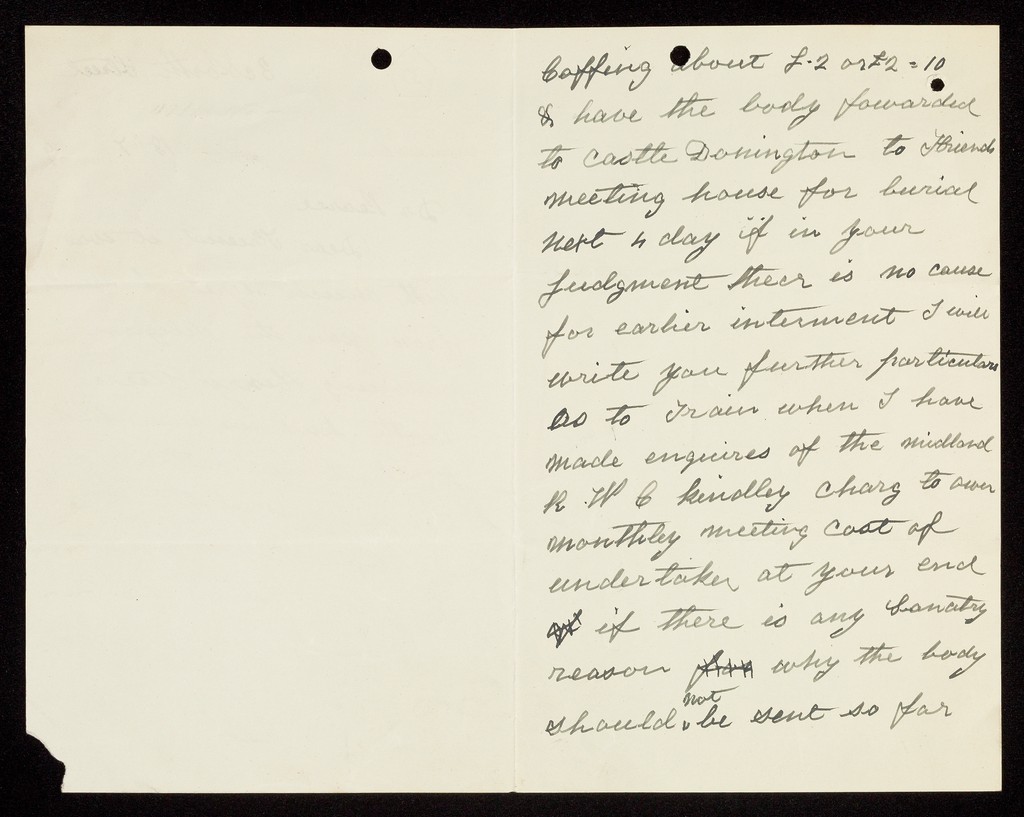 Coffing about £.2 or £2=10
& have the body fowarded
to Castle Donington to Friends
meeting house for burial
next 4 day if in your
judgment theer is no cause
for earlier interment I will
write you further particulars
as to Train when I have
made enquires of the midland
R. W C kindley charg to ower
monthley meeting cost of
undertaker at your end
if there is any Sanatry
reason why the body
should not be sent so far